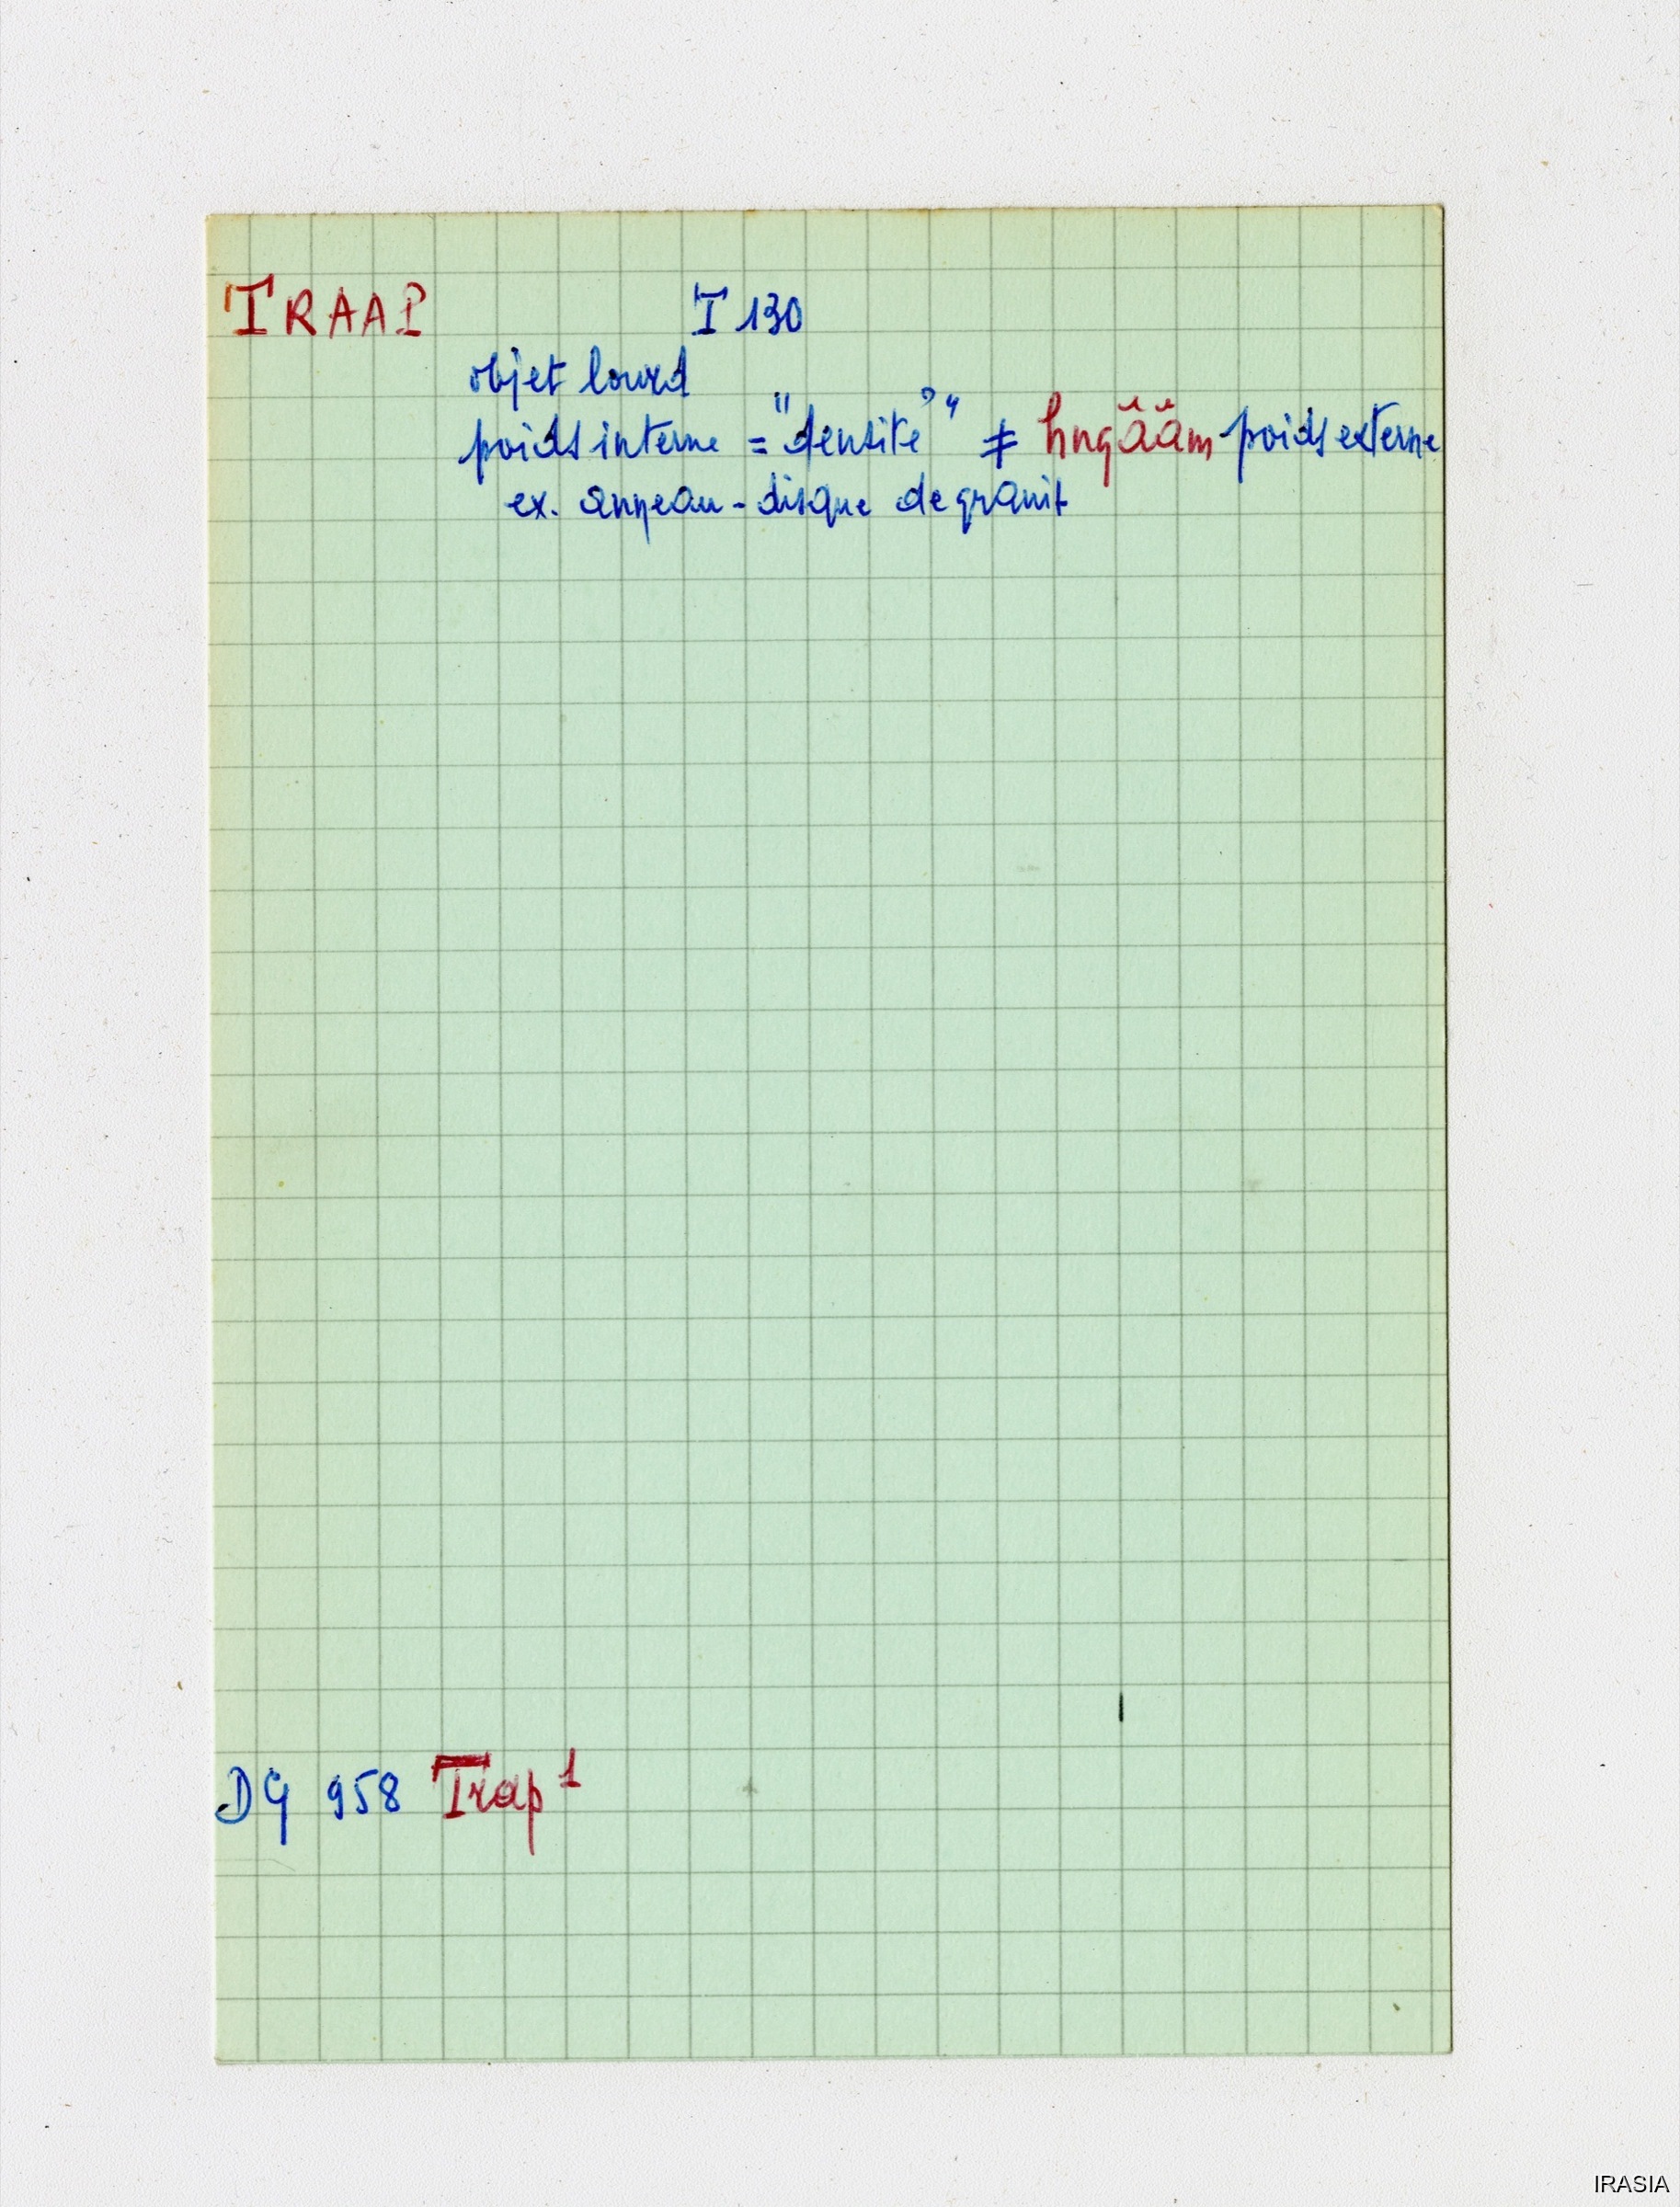 TRAAP T 130
objet lourd
poids interne = "densité" ≠ hngââm poids externe
ex. anneau-disque de granit
DG 958 Trap¹
IRASIA